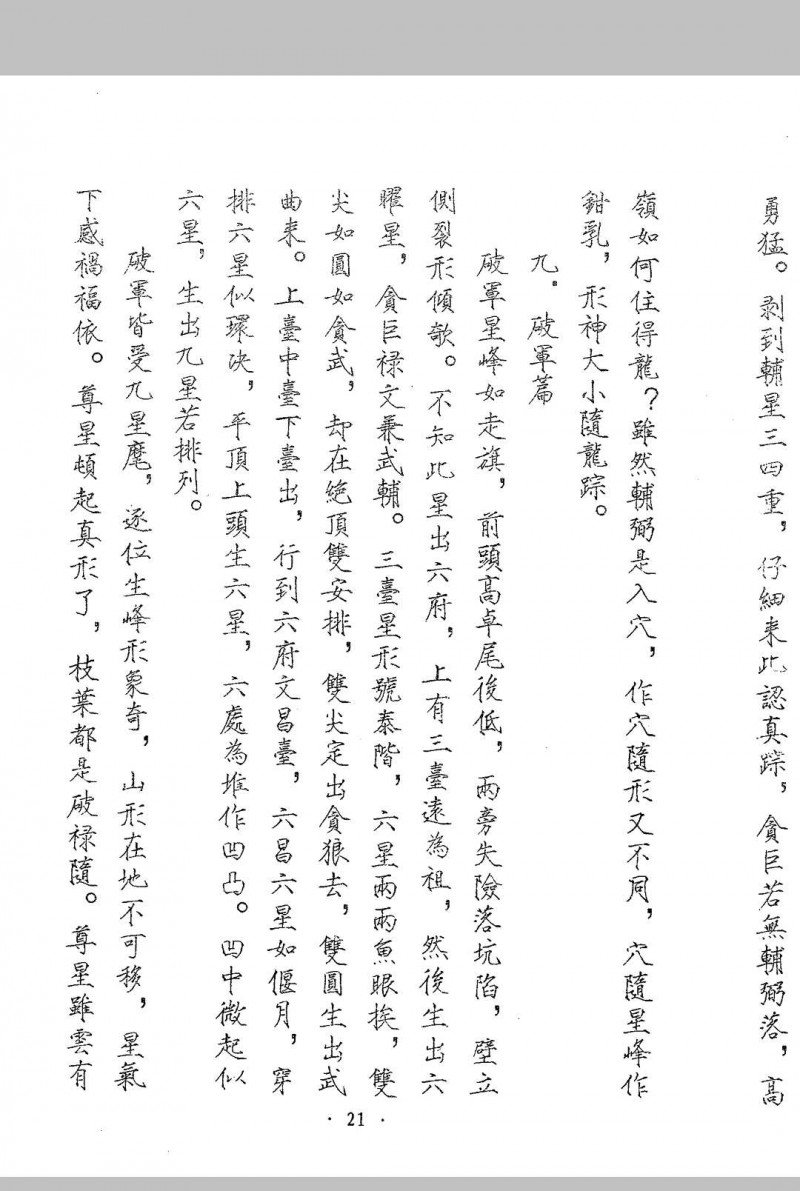 勇猛。剥到輔星三四重，仔細来此認真踪，貪巨若無輔弼落，高
嶺如何住得龍？雖然輔弼是入穴，作穴隨形又不同，穴隨星峰作
鉗乳，形神大小隨龍踪。
九．破軍篇
破軍星峰如走旗，前頭高卓尾後低，兩旁失險落坑陷，壁立
側裂形傾欹。不知此星出六府，上有三臺遠為祖，然後生出六
曜星，貪巨禄文兼武輔。三臺星形號泰階，六星兩兩魚眼挨，雙
尖如圓如貪武，却在絶頂雙安排，雙尖定出貪狼去，雙圓生出武
曲来。上臺中臺下臺出，行到六府文昌臺，六昌六星如偃月，穿
排六星似環决，平頂上頭生六星，六處為堆作凹凸。凹中微起似
六星，生出九星若排列。
破軍皆受九星麾，逐位生峰形象奇，山形在地不可移，星氣
下感禍福依。尊星頓起真形了，枝葉都是破禄隨。尊星雖雲有
· 21 ·